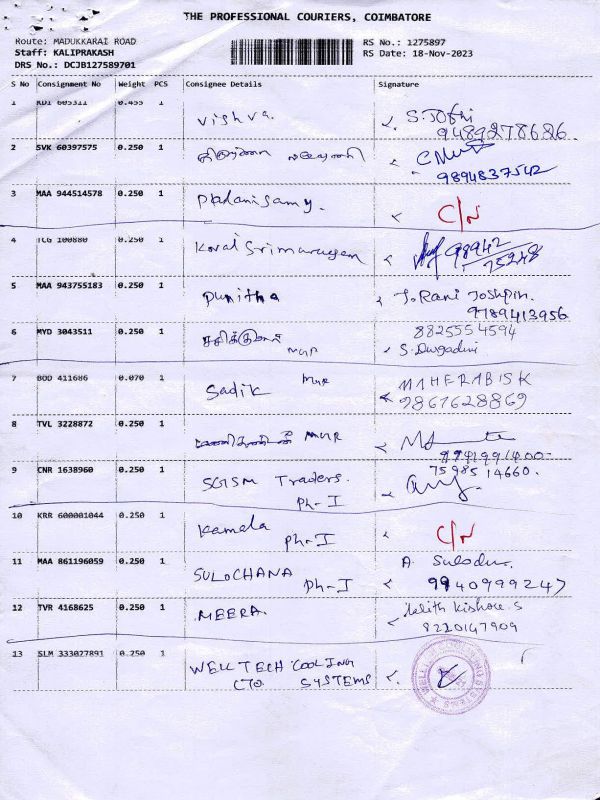 THE PROFESSIONAL COURIERS, COIMBATORE
Route: MADUKKARAI ROAD
Staff: KALIPRAKASH
DRS No.: DCJB127589701
RS No.: 1275897
RS Date: 18-Nov-2023
S No Consignment No Weight PCS Consignee Details Signature
1 KDI 605311 0.455 1 Vishva. S. Jothi
9489278686.
2 SVK 60397575 0.250 1
9894837542
3 MAA 944514578 0.250 1 Pladanisamy. C/N
4 TCG 100880 0.250 1 Koval Srimurugan 98942
75248
5 MAA 943755183 0.250 1 Punitha J. Rani Joshpin.
9789413956.
6 MYD 3043511 0.250 1 சசிக்குமார் MGR 8825554594
S. Durgadevi
7 BOD 411686 0.070 1 Sadik MGR MAHERABISK
9867628869
8 TVL 3228872 0.250 1 MGR
9 CNR 1638960 0.250 1 SGSM Traders. 75985 14660.
Ph-I
10 KRR 600001044 0.250 1 Kamala Ph-I C/N
11 MAA 861196059 0.250 1 SULOCHANA Ph-I A.
9940999247
12 TVR 4168625 0.250 1 MEERA. Kishore. S
8220147909
13 SLM 333027891 0.250 1 WELLTECH COOLING
SYSTEMS